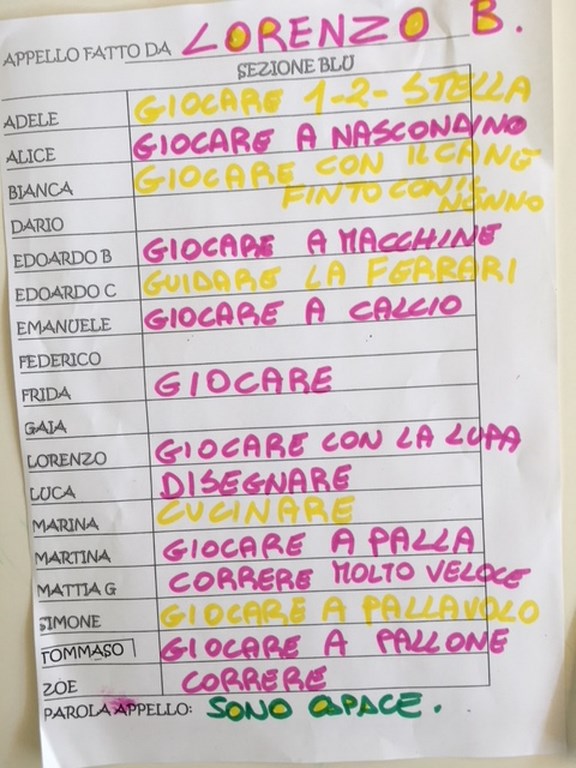 APPELLO FATTO DA LORENZO B.
SEZIONE BLU
ADELE GIOCARE 1-2- STELLA
ALICE GIOCARE A NASCONDINO
BIANCA GIOCARE CON IL CANE
FINTO CON IL
NONNO
DARIO
EDOARDO B GIOCARE A MACCHINE
EDOARDO C GUIDARE LA FERRARI
EMANUELE GIOCARE A CALCIO
FEDERICO
FRIDA GIOCARE
GAIA
LORENZO GIOCARE CON LA LUPA
LUCA DISEGNARE
MARINA CUCINARE
MARTINA GIOCARE A PALLA
MATTIA G CORRERE MOLTO VELOCE
SIMONE GIOCARE A PALLAVOLO
TOMMASO GIOCARE A PALLONE
ZOE CORRERE
PAROLA APPELLO: SONO CAPACE.